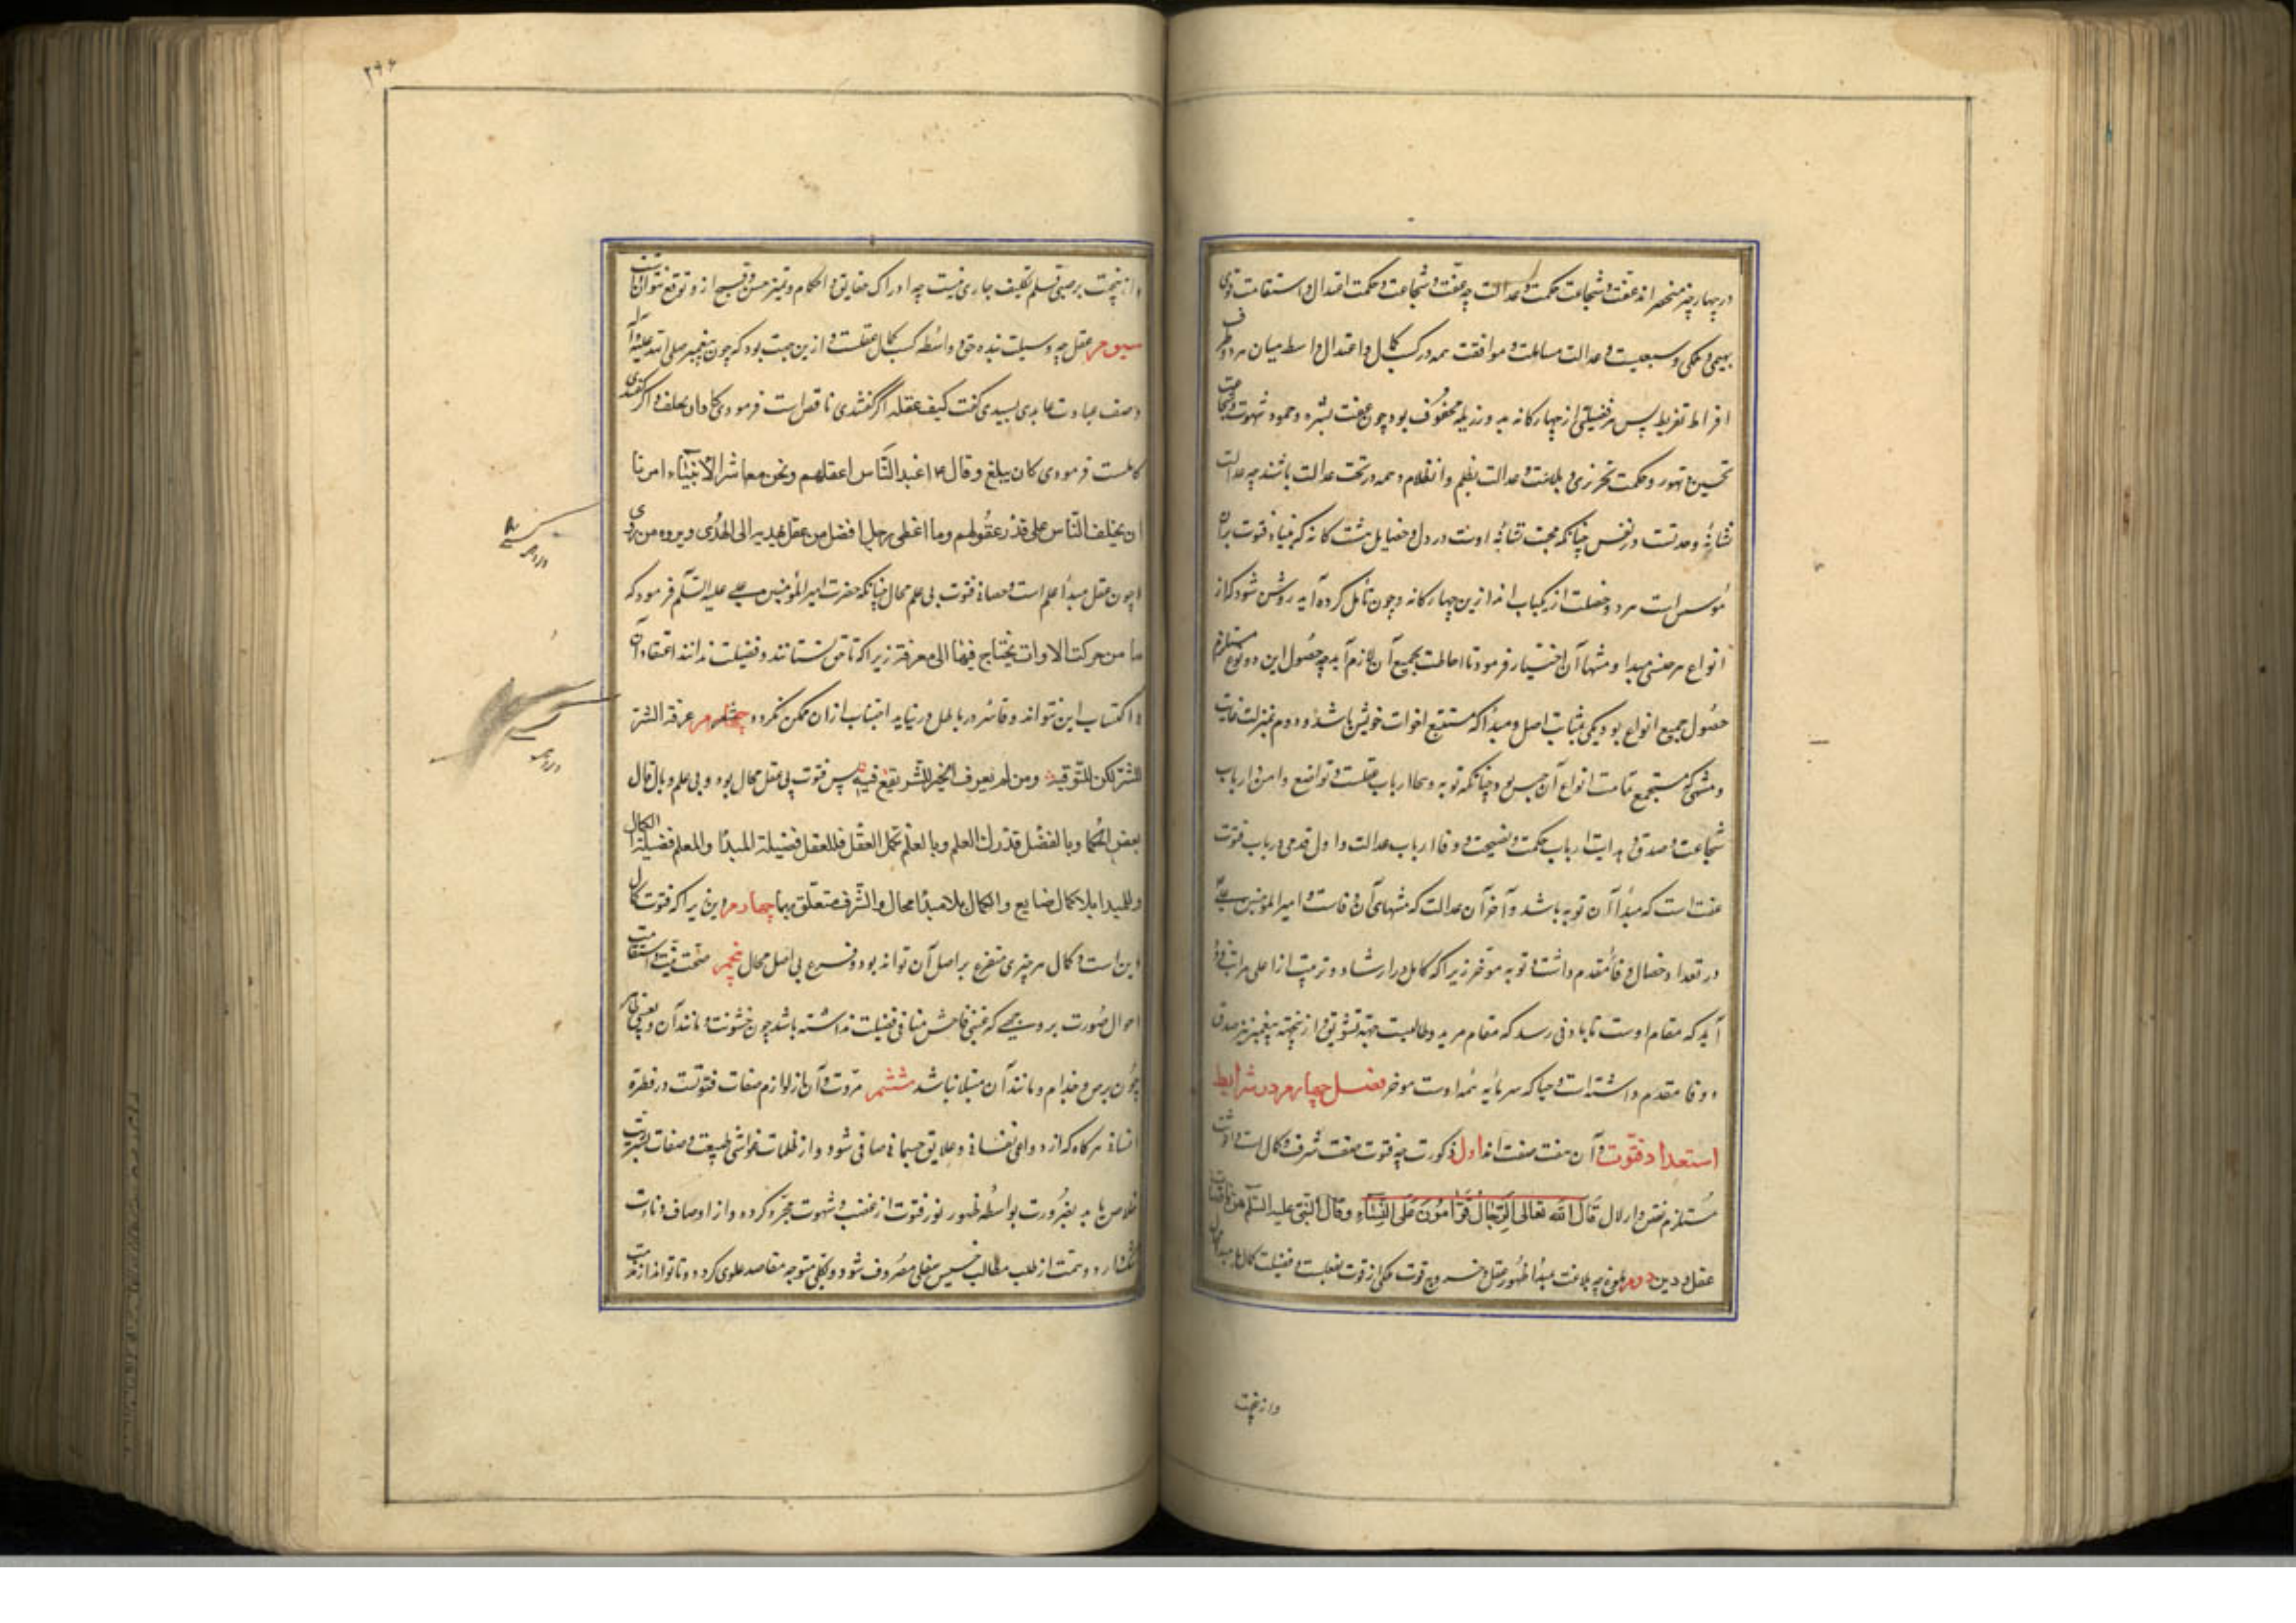 در چهار چیز منحصر اند عفت و شجاعت و حکمت و عدالت چه عفت و شجاعت و حکمت اعتدال و استقامت قوی
بهیمی و ملکی و سبعیت و عدالت مسالمت و موافقت همه در کسب کمال و اعتدال واسطه میان هر دو طرف
افراط تفریط پس هر فضیلتی از چهارکانه به دو رذیله محفوف بود چون عفت بشره و خمود شهوت و شجاعت
بجبن و تهور و حکمت بجربزه و بلاهت و عدالت بظلم و انظلام و همه در تحت عدالت باشند چه عدالت
نشانهٔ وحدتست در نفس چنانکه محبت نشانهٔ اوست در دل و خصایل هشت کانه که بنیاد فتوت بر آن
مؤسس است هر دو خصلت از یکباب اند ازین چهارکانه و چون تأمل کرده آید روشن شود که از
انواع هر جنسی مبدا و منتها آن اختیار فرمود تا احاطت بجمیع آن لازم آید چه حصول این دو نوع مستلزم
حصول جمیع انواع بود یکی بمثابت اصل و مبدأ که مستتبع اخوات خویش باشد و دوم بمنزلت غایت
و منتهی که مستجمع تمامت انواع آن جنس بود چنانکه توبه و سخا از باب عفتست و تواضع و امن از باب
شجاعت و صدق و هدایت از باب حکمت و نصیحت و وفا از باب عدالت و اول قدمی در باب فتوت
عفت است که مبدأ آن توبه باشد و آخر آن عدالت که منتهای آن وفاست و امیر المؤمنین علی
در تعداد خصال وفا مقدم داشت و توبه مؤخر زیرا که کامل در ارشاد و تربیت از اعلی مراتب فرو
آید که مقام اوست تا بادنی رسد که مقام مرید و طالبست جهة تشویق و ازینجهته پیغمبر نیز صدق
و وفا مقدم داشته است و حیا که سرمایه همه اوست موخر فصل چهارم در شرایط
استعداد فتوت و آن هفت صفت اند اول ذکورت چه فتوت صفت شرف و کمال است و انوثت
مستلزم نقص و اذلال قال الله تعالی الرجال قوامون علی النساء وقال النبی علیه السلم هن ناقصات
عقل و دین دوم بلوغ چه بلاغت مبدأ ظهور عقل و خروج قوت ملکی از قوت بفعلست و فضیلت کمال را مبدا
وازینجهت
۲۹۶
وازینجهت بر صبی قلم تکلیف جاری نیست چه ادراک حقایق و احکام و تمیز حسن و قبیح ازو توقع نتوان داشت
سیوم عقل چه وسیلت بنده حق و واسطه کسب کمال عقلست و ازین جهت بود که چون پیغمبر صلی الله علیه وآله
وصف عبادت عابدی بسیدی گفت کیف عقله اگر گفتندی ناقص است فرمودی ... و اگر گفتندی
کاملست فرمودی کان یبلغ وقال ۴ اعبد الناس اعقلهم ونحن معاشر الانبیاء امرنا
ان نخلف الناس علی قدر عقولهم وما اعطی رجل افضل من عقل یهدیه الی الهدی ویرده من ردی
و چون عقل مبدأ علم است و حصانة فتوت بی علم محال چنانکه حضرت امیر المؤمنین علی علیه السلم فرمود که
ما من حرکت الا وانت تحتاج فیها الی معرفة زیرا که تا حق نشناسند و فضیلت ندانند اعتقاد آن
و اکتساب این نتواند و فاسد در باطل در نیابد اجتناب از آن ممکن نگردد ... عرفت الشر
للشر لکن لتوقیه ومن لم یعرف الخیر للشر یقع فیه پس فتوت بی عقل محال بود و بی علم وبال قال
بعض الحکما وبالفضل قد رک العلم وبالعلم تمل العقل فللعقل فضیلة المبدأ وللعلم فضیلة الکمال
وللمبدا بلا کمال ضایع والکمال بلا مبدأ محال والشرف متعلق بهما چهارم دین زیرا که فتوت کمال
دین است و کمال هر چیزی متفرع بر اصل آن تواند بود و فرع بی اصل محال پنجم صحت بنیت و استقامت
احوال صورت بر وجهی که غبنی فاحش منافی فضیلت نداشته باشد چون خنثویت و مانند آن و بعیبی ظاهر
چون برص و جذام و مانند آن مبتلا نباشد ششم مروت و آن از لوازم صفات فتوتست و فطرة
انسانی هرکاه که از دواعی نفسانی و علایق جسمانی صافی شود و از ظلمات غواشی طبیعت و صفات بشریت
خلاص یابد بضرورت بواسطه ظهور نور فتوت از غضب و شهوت مجرد کردد و از اوصاف و دناءت
... دارد و همت از طلب مطالب خسیس سفلی مصروف شود و بکلی متوجه مقاصد علوی کردد و تا تواند از مذمت